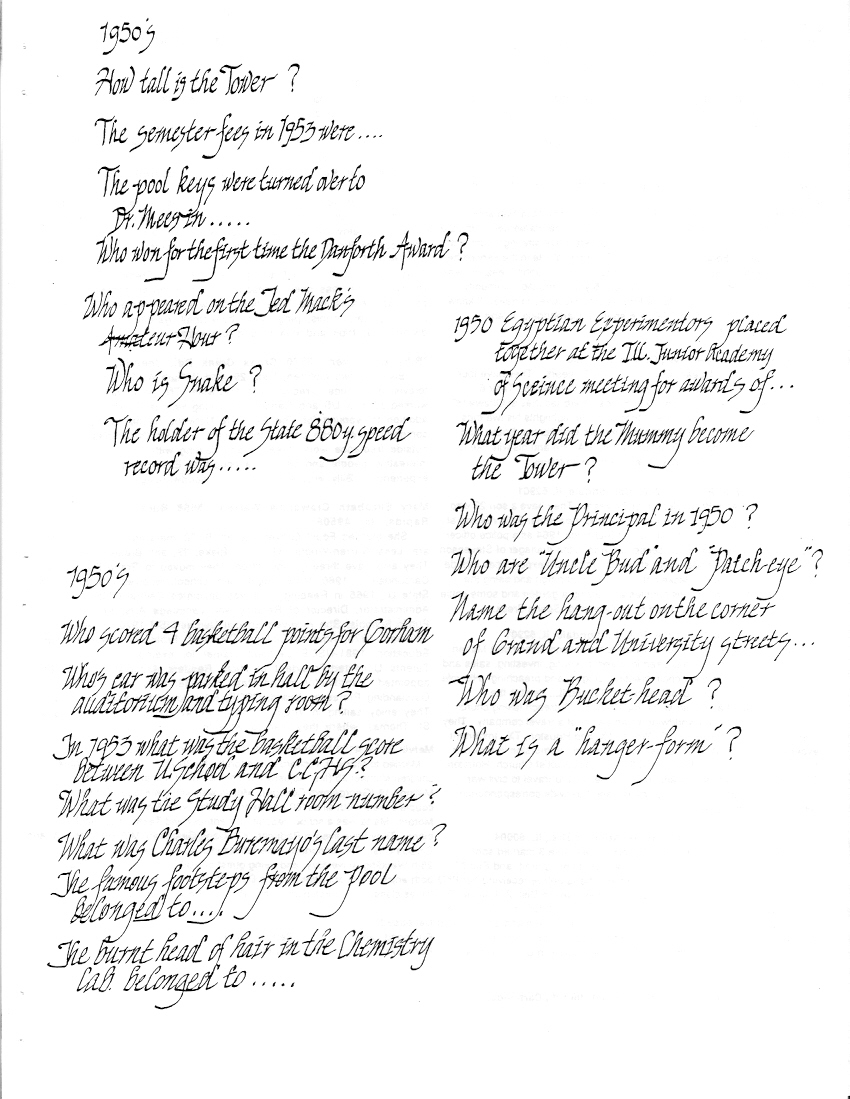 1950's
How tall is the Tower ?
The semester fees in 1953 were....
The pool keys were turned over to
Dr. Meegin.....
Who won for the first time the Danforth Award ?
Who appeared on the Ted Mack's
Amateur Hour ?
Who is Snake ?
The holder of the State 880 y. speed
record was.....
1950's
Who scored 4 basketball points for Gorham
Who's car was parked in hall by the
auditorium and typing room ?
In 1953 what was the basketball score
between U School and C.C.H.S ?
What was the Study Hall room number ?
What was Charles Buremayo's last name ?
The famous footsteps from the Pool
belonged to....
The burnt head of hair in the Chemistry
Lab. belonged to .....
1950 Egyptian Experimentors placed
together at the Ill. Junior Academy
of Sceince meeting for awards of...
What year did the Mummy become
the Tower ?
Who was the Principal in 1950 ?
Who are "Uncle Bud" and "Patch-eye" ?
Name the hang-out on the corner
of Grand and University streets...
Who was Bucket-head ?
What is a "hanger-form" ?